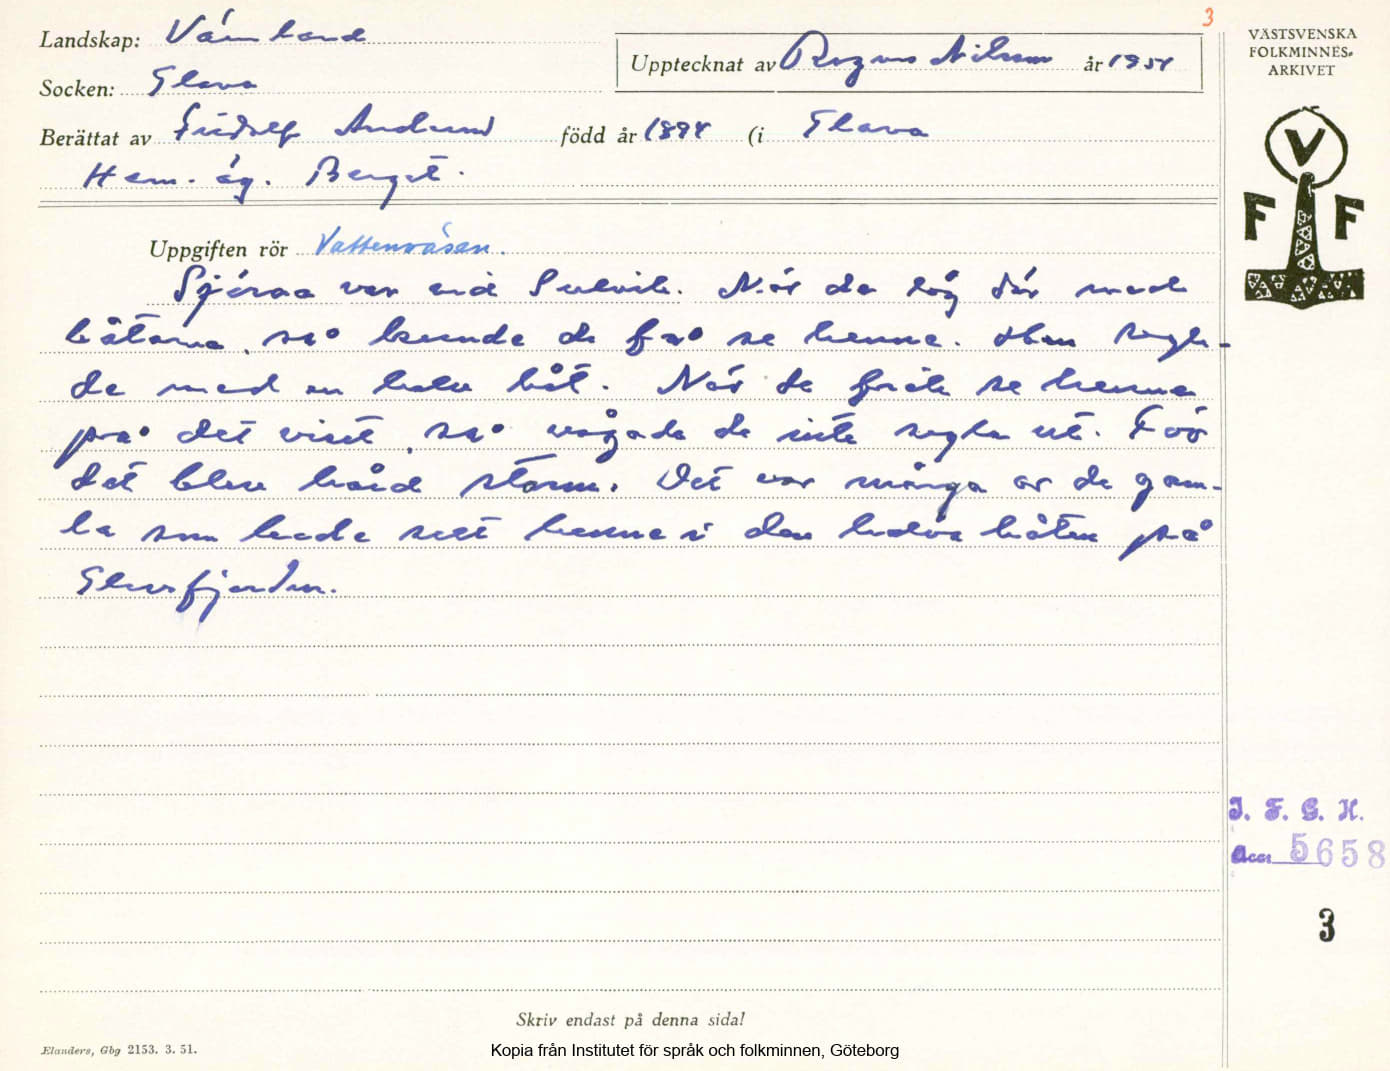 3
Landskap: Värmland
Upptecknat av Ragnar Nilsson år 1951
VÄSTSVENSKA
FOLKMINNES-
ARKIVET
Socken: Glava
Berättat av Fridolf Anlund född år 1894 (i Glava
Hem. äg. Berget.
V
F F
Uppgiften rör Vattenväsen.
Sjöraa var vid Sulvik. När de låg där med
båtarna, så kunde de få se henne. Hon segla-
de med en halv båt. När de fick se henne
på det viset, så vågade de inte segla ut. För
det blev hård storm. Det var många av de gam-
la som hade sett henne i den halva båten på
Glafsfjorden.
I. F. G. H.
Acc: 5658
3
Skriv endast på denna sida!
Elanders, Gbg 2153. 3. 51.
Kopia från Institutet för språk och folkminnen, Göteborg